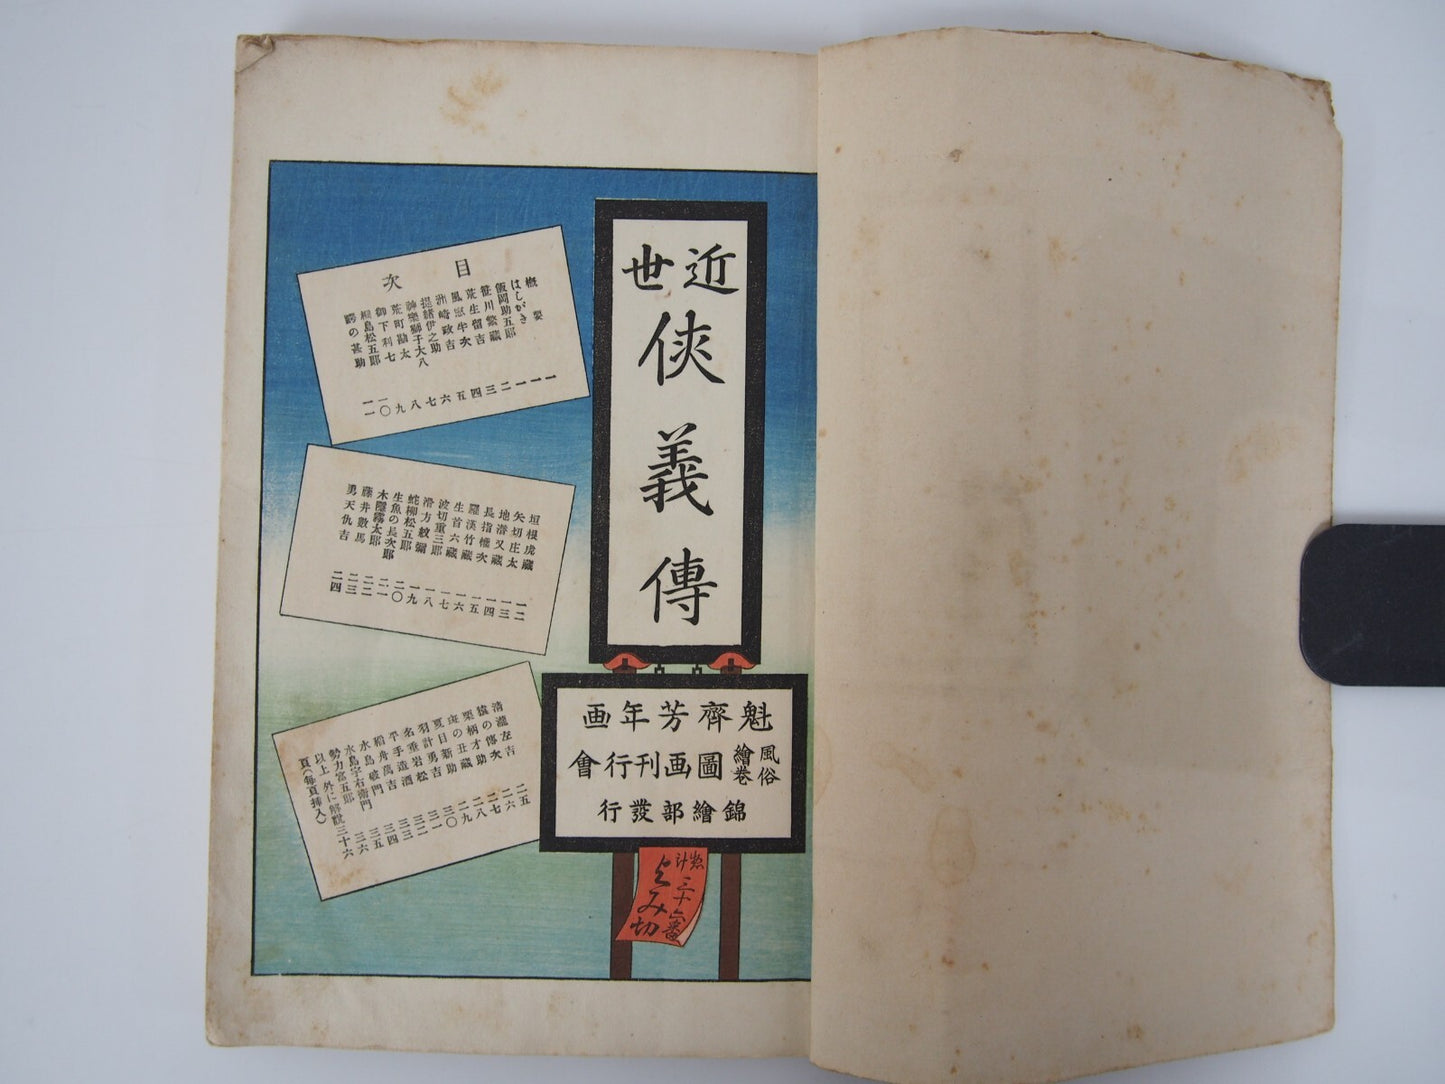 近世
俠義傳
魁齊芳年画
風俗繪巻圖画刊行會
錦繪部發行
惣計三十六番
よみ切
目次
概要 一
はしがき 一
飯岡助五郎 一
笹川繁藏 二
荒生留吉 三
風窓半次 四
洲崎政吉 五
提緒伊之助 六
神樂獅子大八 七
荒町勘太 八
御下利七 九
桐島松五郎 一〇
諤の甚助 一一
垣根虎藏 一二
矢切庄太 一三
地潜又藏 一四
長指權次 一五
羅漢竹藏 一六
生首六藏 一七
波切重三郎 一八
滑方紋彌 一九
蛇柳松五郎 二〇
生魚の長次郎 二一
木隠霧太郎 二二
藤井數馬 二三
勇天仇吉 二四
清瀧左吉 二五
猿の傳次 二六
栗柄才助 二七
斑の丑藏 二八
夏目新助 二九
羽計勇吉 三〇
名垂岩松 三一
平手造酒 三二
稻舟萬吉 三三
水島破門 三四
水島字右衛門 三五
勢力富五郎 三六
以上外に解説三十六
頁(毎頁挿入)